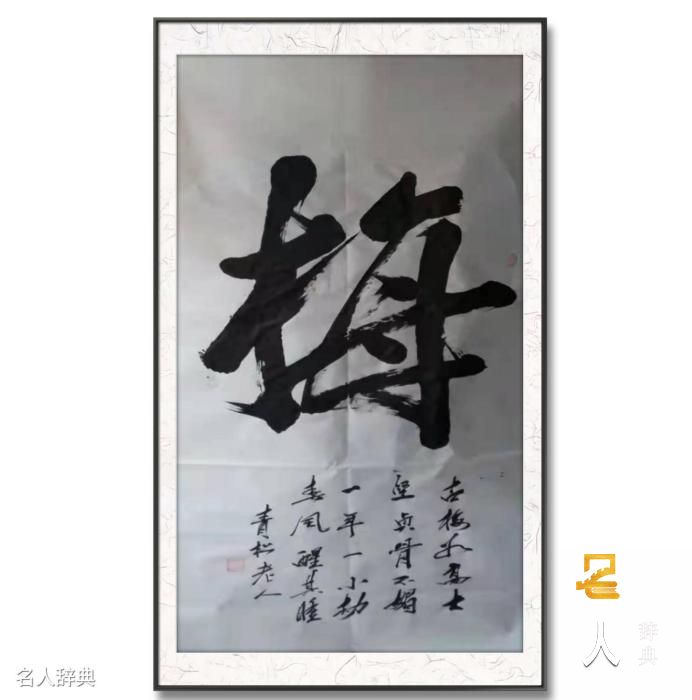 梅
古梅如高士
坚贞骨不媚
一年一小劫
春风醒其睡
青松老人
名人辞典
名人
辞典